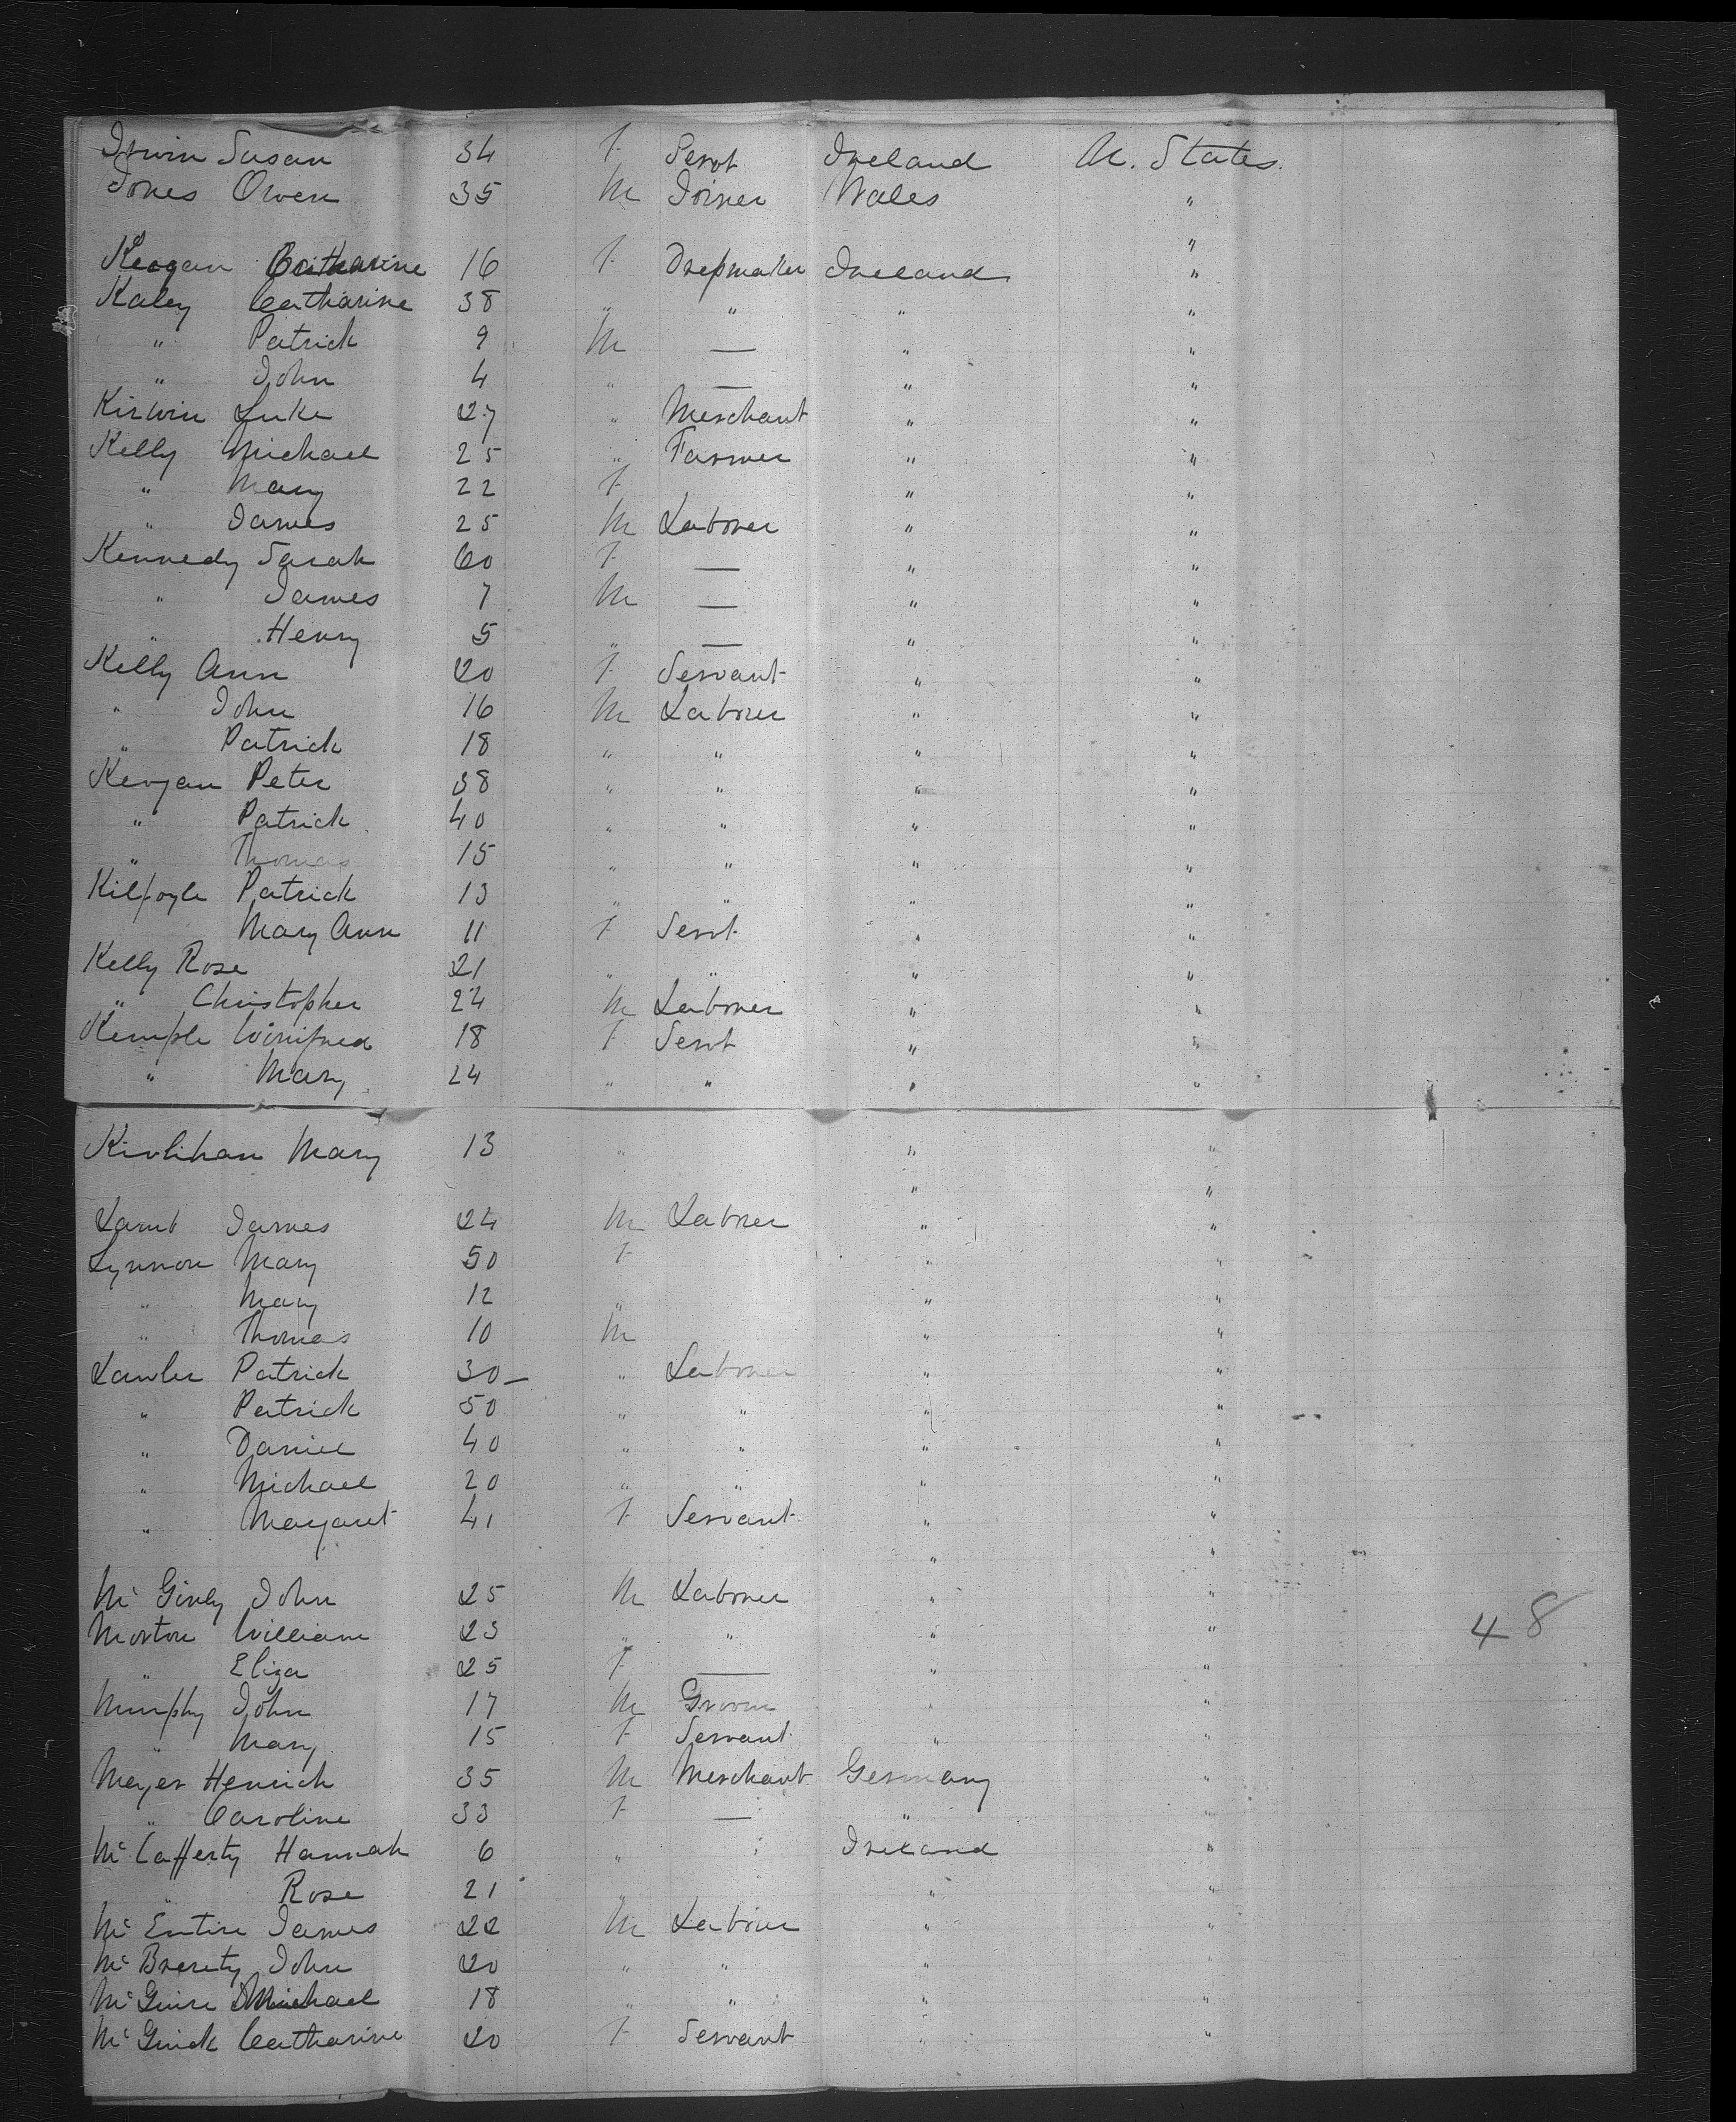 Irwin Susan 34 f Servt Ireland U. States.
Jones Owen 35 M Joiner Wales "
"
Keogan Catharine 16 f Dressmaker Ireland "
Kaley Catharine 38 " " " "
" Patrick 9 M — " "
" John 4 " — " "
Kirwin Luke 27 " Merchant " "
Kelly Michael 25 " Farmer " "
" Mary 22 f " "
" James 25 M Laborer " "
Kennedy Sarah 60 f — " "
" James 7 M — " "
" Henry 5 " — " "
Kelly Ann 20 f Servant " "
" John 16 M Laborer " "
" Patrick 18 " " " "
Keogan Peter 38 " " " "
" Patrick 40 " " " "
" Thomas 15 " " " "
Kilfoyle Patrick 13 " " " "
Mary Ann 11 f Servt " "
Kelly Rose 21 " " " "
" Christopher 24 M Laborer " "
Kemple Winifred 18 f Servt " "
" Mary 24 " " " "
Kivlihan Mary 13 " " "
" "
Lamb James 24 M Laborer " "
Lynnon Mary 50 f " "
" Mary 12 " " "
" Thomas 10 M " "
Lawler Patrick 30 — " Laborer " "
" Patrick 50 " " " "
" Daniel 40 " " " "
" Michael 20 " " " "
" Margaret 41 f Servant " "
" "
Mc Ginly John 25 M Laborer " "
Morton William 23 " " " "
" Eliza 25 f — " "
48
Murphy John 17 M Groom " "
" Mary 15 f Servant " "
Meyer Henrich 35 M Merchant Germany "
" Caroline 33 f — " "
Mc Cafferty Hannah 6 " Ireland "
" Rose 21 " " "
Mc Entire James 22 M Laborer " "
Mc Brerity John 20 " " " "
Mc Guire Michael 18 " " " "
Mc Guick Catharine 20 f Servant " "